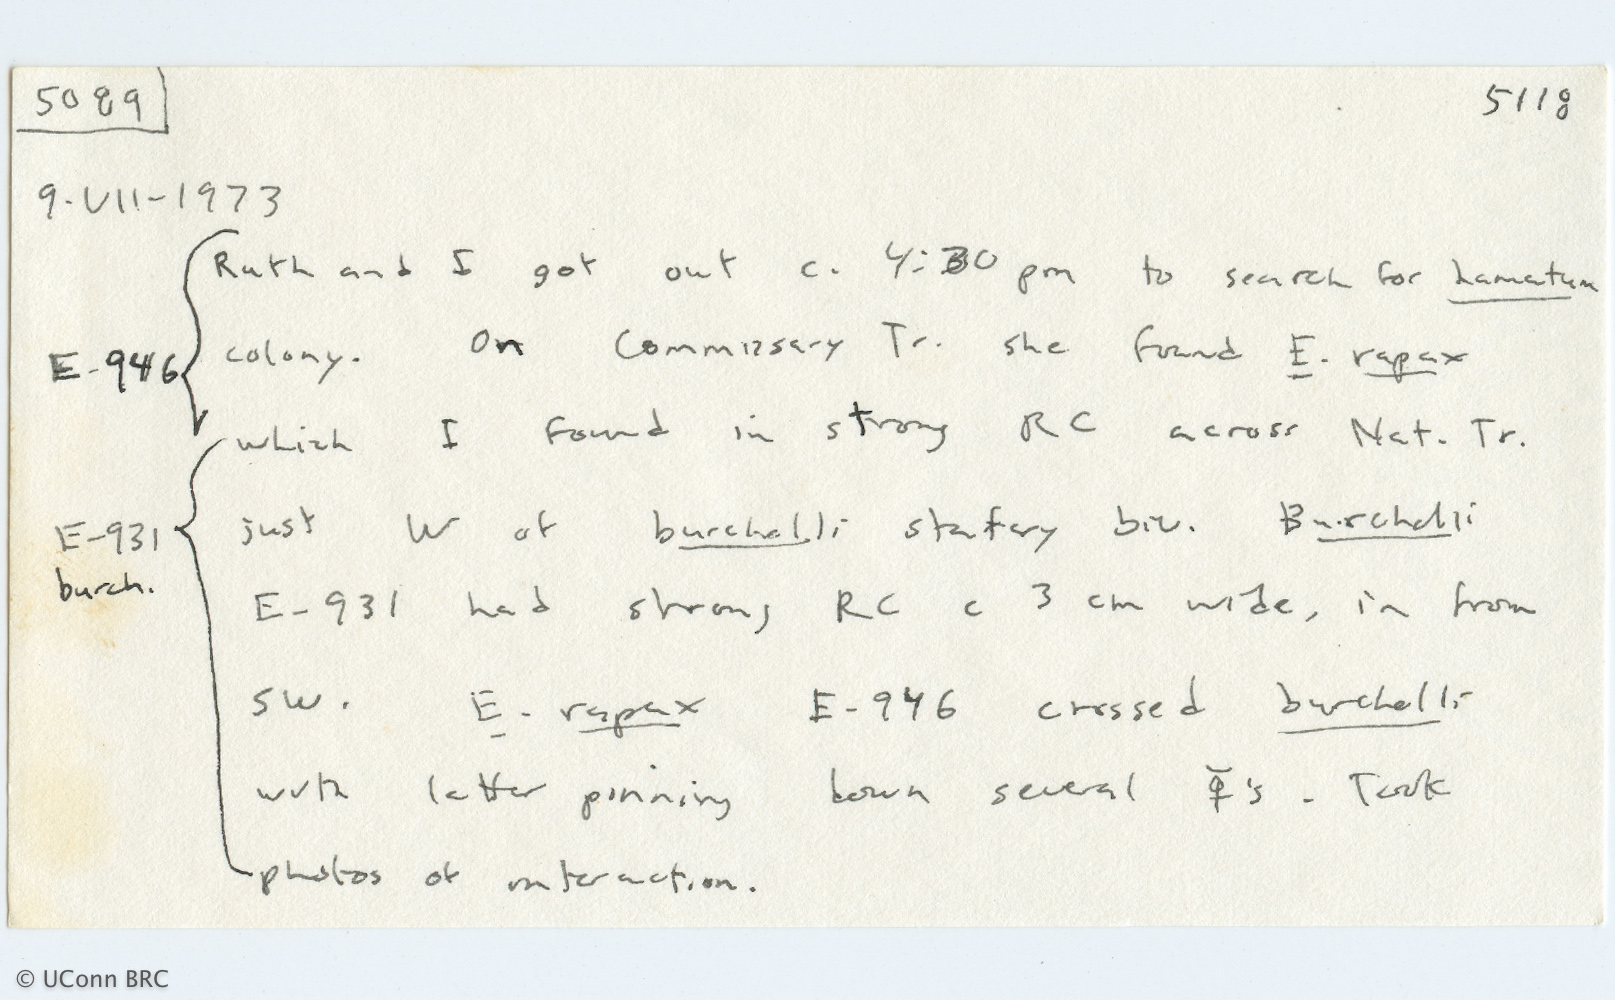 5089
5118
9-VII-1973
Ruth and I got out c. 4:30 pm to search for hamatum
E-946 colony. On Commissary Tr. she found E. rapax
which I found in strong RC across Nat. Tr.
E-931 just W of burchelli statary biv. Burchelli
burch.
E-931 had strong RC c 3 cm wide, in from
SW. E. rapax E-946 crossed burchelli
with latter pinning down several ☿'s. Took
photos of interaction.
© UConn BRC